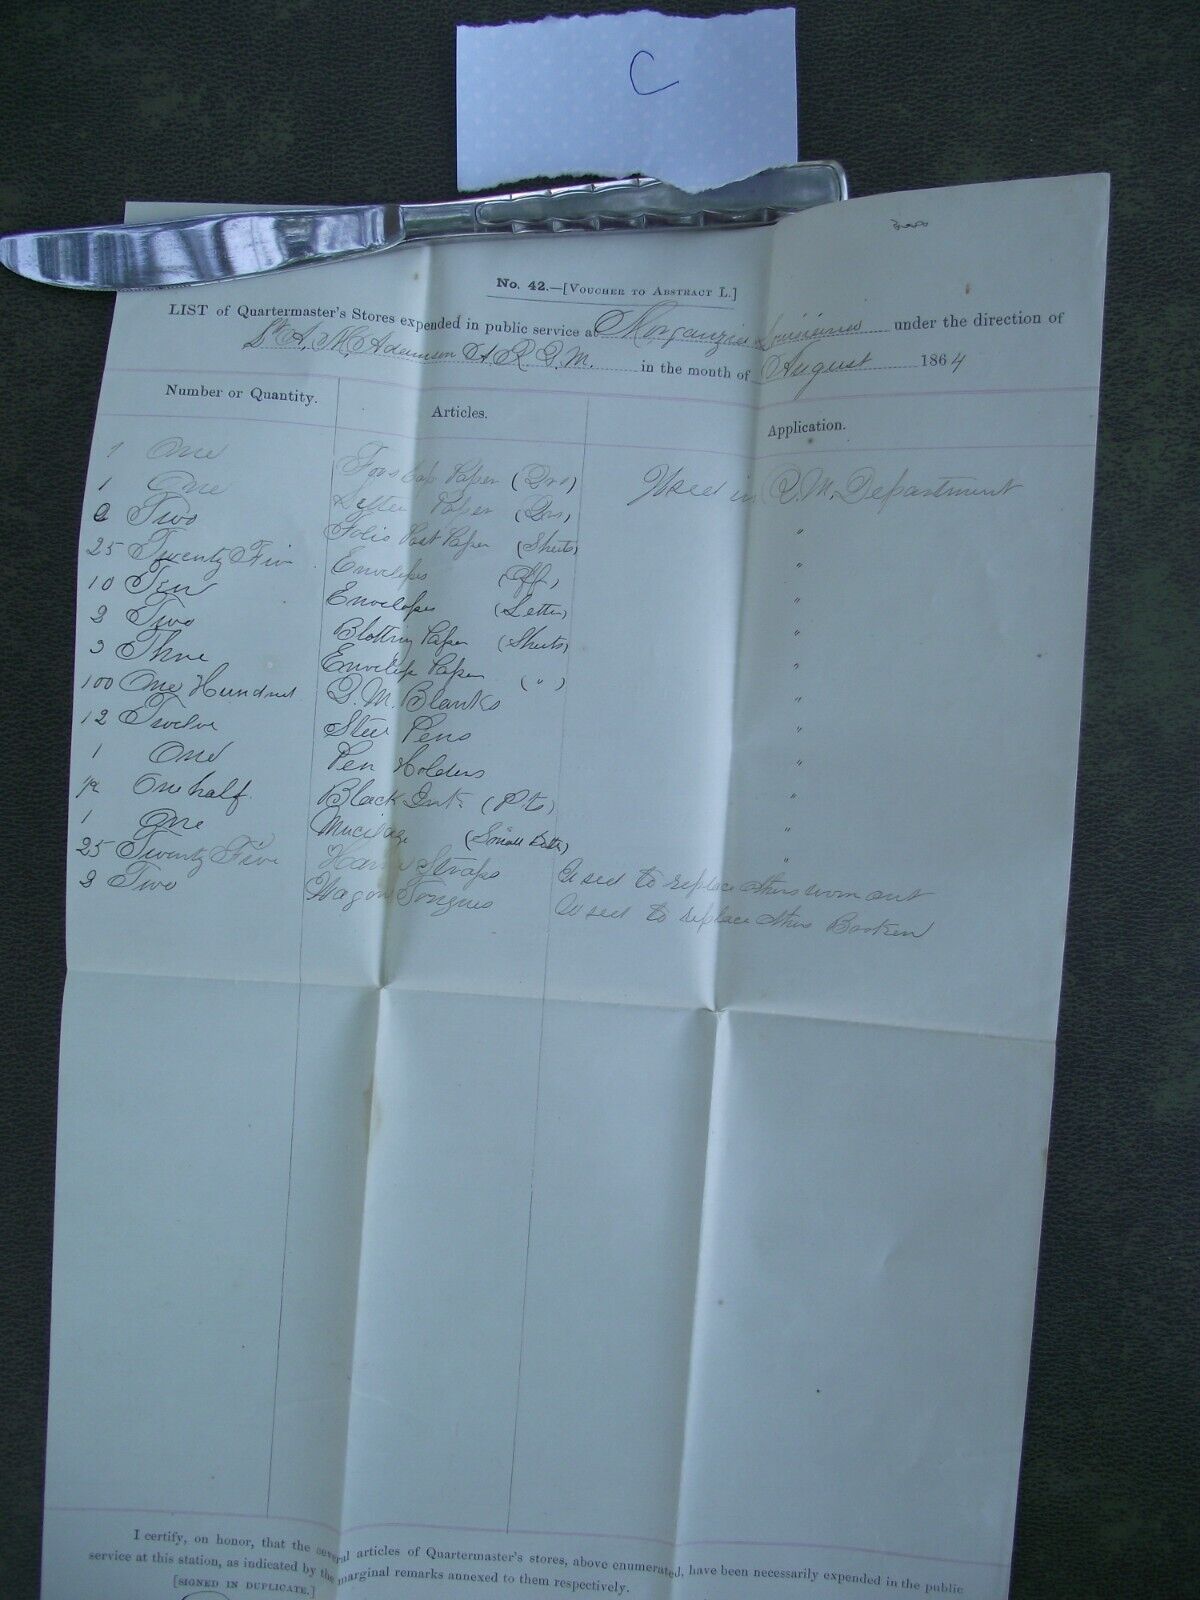 C
No. 42.—[Voucher to Abstract L.]
LIST of Quartermaster's Stores expended in public service at Morganzia Louisiana under the direction of
Lt A. M. Adamson A. R. Q. M. in the month of August 1864
Number or Quantity. Articles. Application.
1 One Fools Cap Paper (Qrs) Used in Q. M. Department
1 One Letter Paper (Qrs) "
2 Two Folio Post Paper (Sheets) "
25 Twenty Five Envelopes (Off) "
10 Ten Envelopes (Letter) "
2 Two Blotting Paper (Sheets) "
3 Three Envelope Paper ( " ) "
100 One Hundred Q. M. Blanks "
12 Twelve Steel Pens "
1 One Pen Holders "
1/2 One half Black Ink (Pts) "
1 One Mucilage (Small Bottle) "
25 Twenty Five Hame Straps Used to replace others worn out
2 Two Wagon Tongues Used to replace others Broken
I certify, on honor, that the several articles of Quartermaster's stores, above enumerated, have been necessarily expended in the public
service at this station, as indicated by the marginal remarks annexed to them respectively.
[SIGNED IN DUPLICATE.]